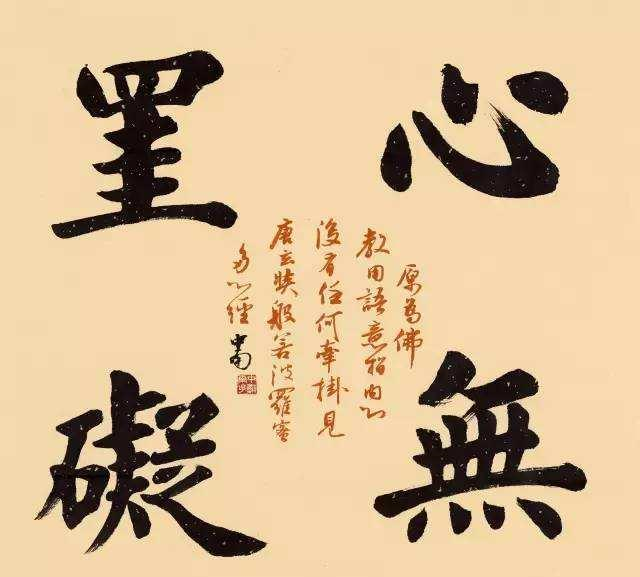 心無
罣礙
原為佛
教用語意指内心
没有任何牽掛見
唐玄奘般若波羅蜜
多心經